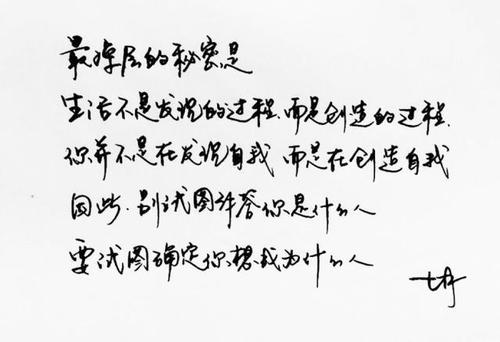 最深层的秘密是
生活不是发现的过程.而是创造的过程.
你并不是在发现自我 而是在创造自我
因此.别试图弄答你是什么人
要试图确定你想成为什么人